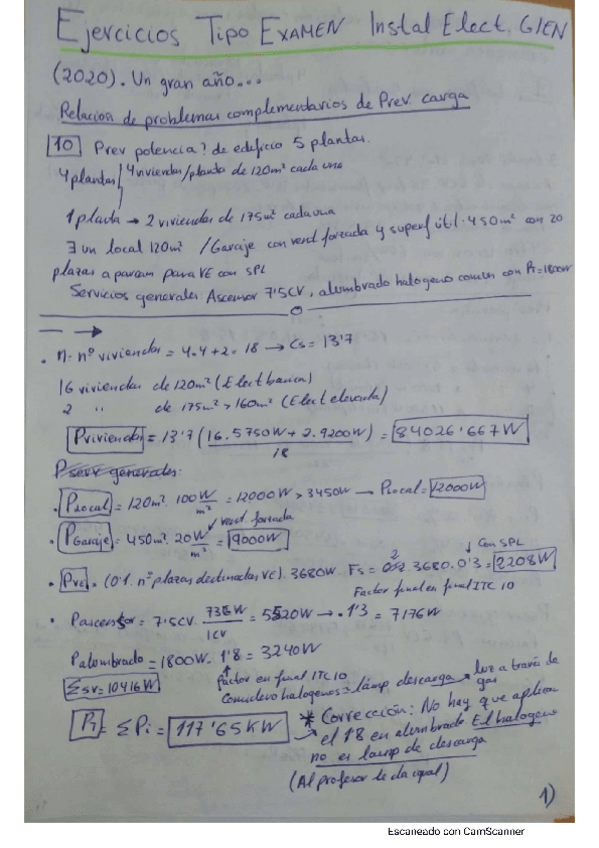 Ejercicios Tipo EXAMEN Instal Elect. GIEN
(2020). Un gran año...
Relación de problemas complementarios de Prev. carga
10 Prev potencia? de edificio 5 plantas.
4 plantas 4 viviendas/planta de 120m² cada una
1 planta → 2 viviendas de 175m² cada una
∃ un local 120m² / Garaje con vent forzada y superf útil 450m² con 20
plazas a para VE con SPL
Servicios generales: Ascensor 7'5CV, alumbrado halogeno comun con Pt=1800W
• n: nº viviendas = 4·4+2 = 18 → Cs = 13'7
16 viviendas de 120m² (Elect basica)
2 " de 175m² > 160m² (Elect elevada)
Pviviendas = 13'7 (16·5750W + 2·9200W)/18 = 84026'667W
Pserv generales:
• Plocal = 120m² · 100 W/m² = 12000W > 3450W → Plocal = 12000W
vent. forzada
• PGaraje = 450m² · 20 W/m² = 9000W
Con SPL
• PVE = (0'1. nº plazas destinadas VE) · 3680W · Fs = 2 · 3680 · 0'3 = 2208W
Factor final en final ITC 10
• Pascensor = 7'5CV · 736W/1CV = 5520W → · 1'3 = 7176W
Palumbrado = 1800W · 1'8 = 3240W
factor en final ITC 10
Considero halogenos = lámp descarga → luz a través de gas
Σsv = 10416W
PT = ΣPi = 117'65KW
* Corrección: No hay que aplicar
el 1'8 en alumbrado El halogeno
no es lamp de descarga
(Al profesor le da igual)
1)
Escaneado con CamScanner